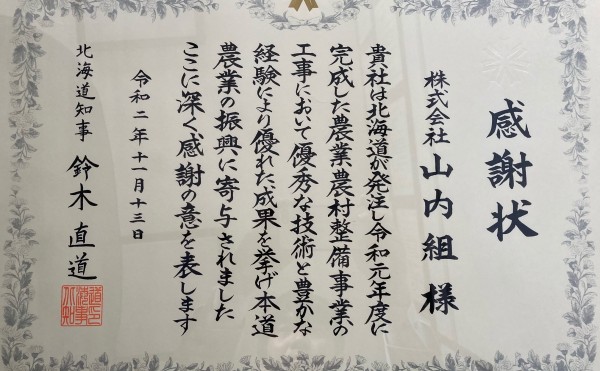 感謝状
株式会社 山内組 様
貴社は北海道が発注し令和元年度に
完成した農業農村整備事業の
工事において優秀な技術と豊かな
経験により優れた成果を挙げ本道
農業の振興に寄与されました
ここに深く感謝の意を表します
令和二年十一月十三日
北海道知事 鈴木直道